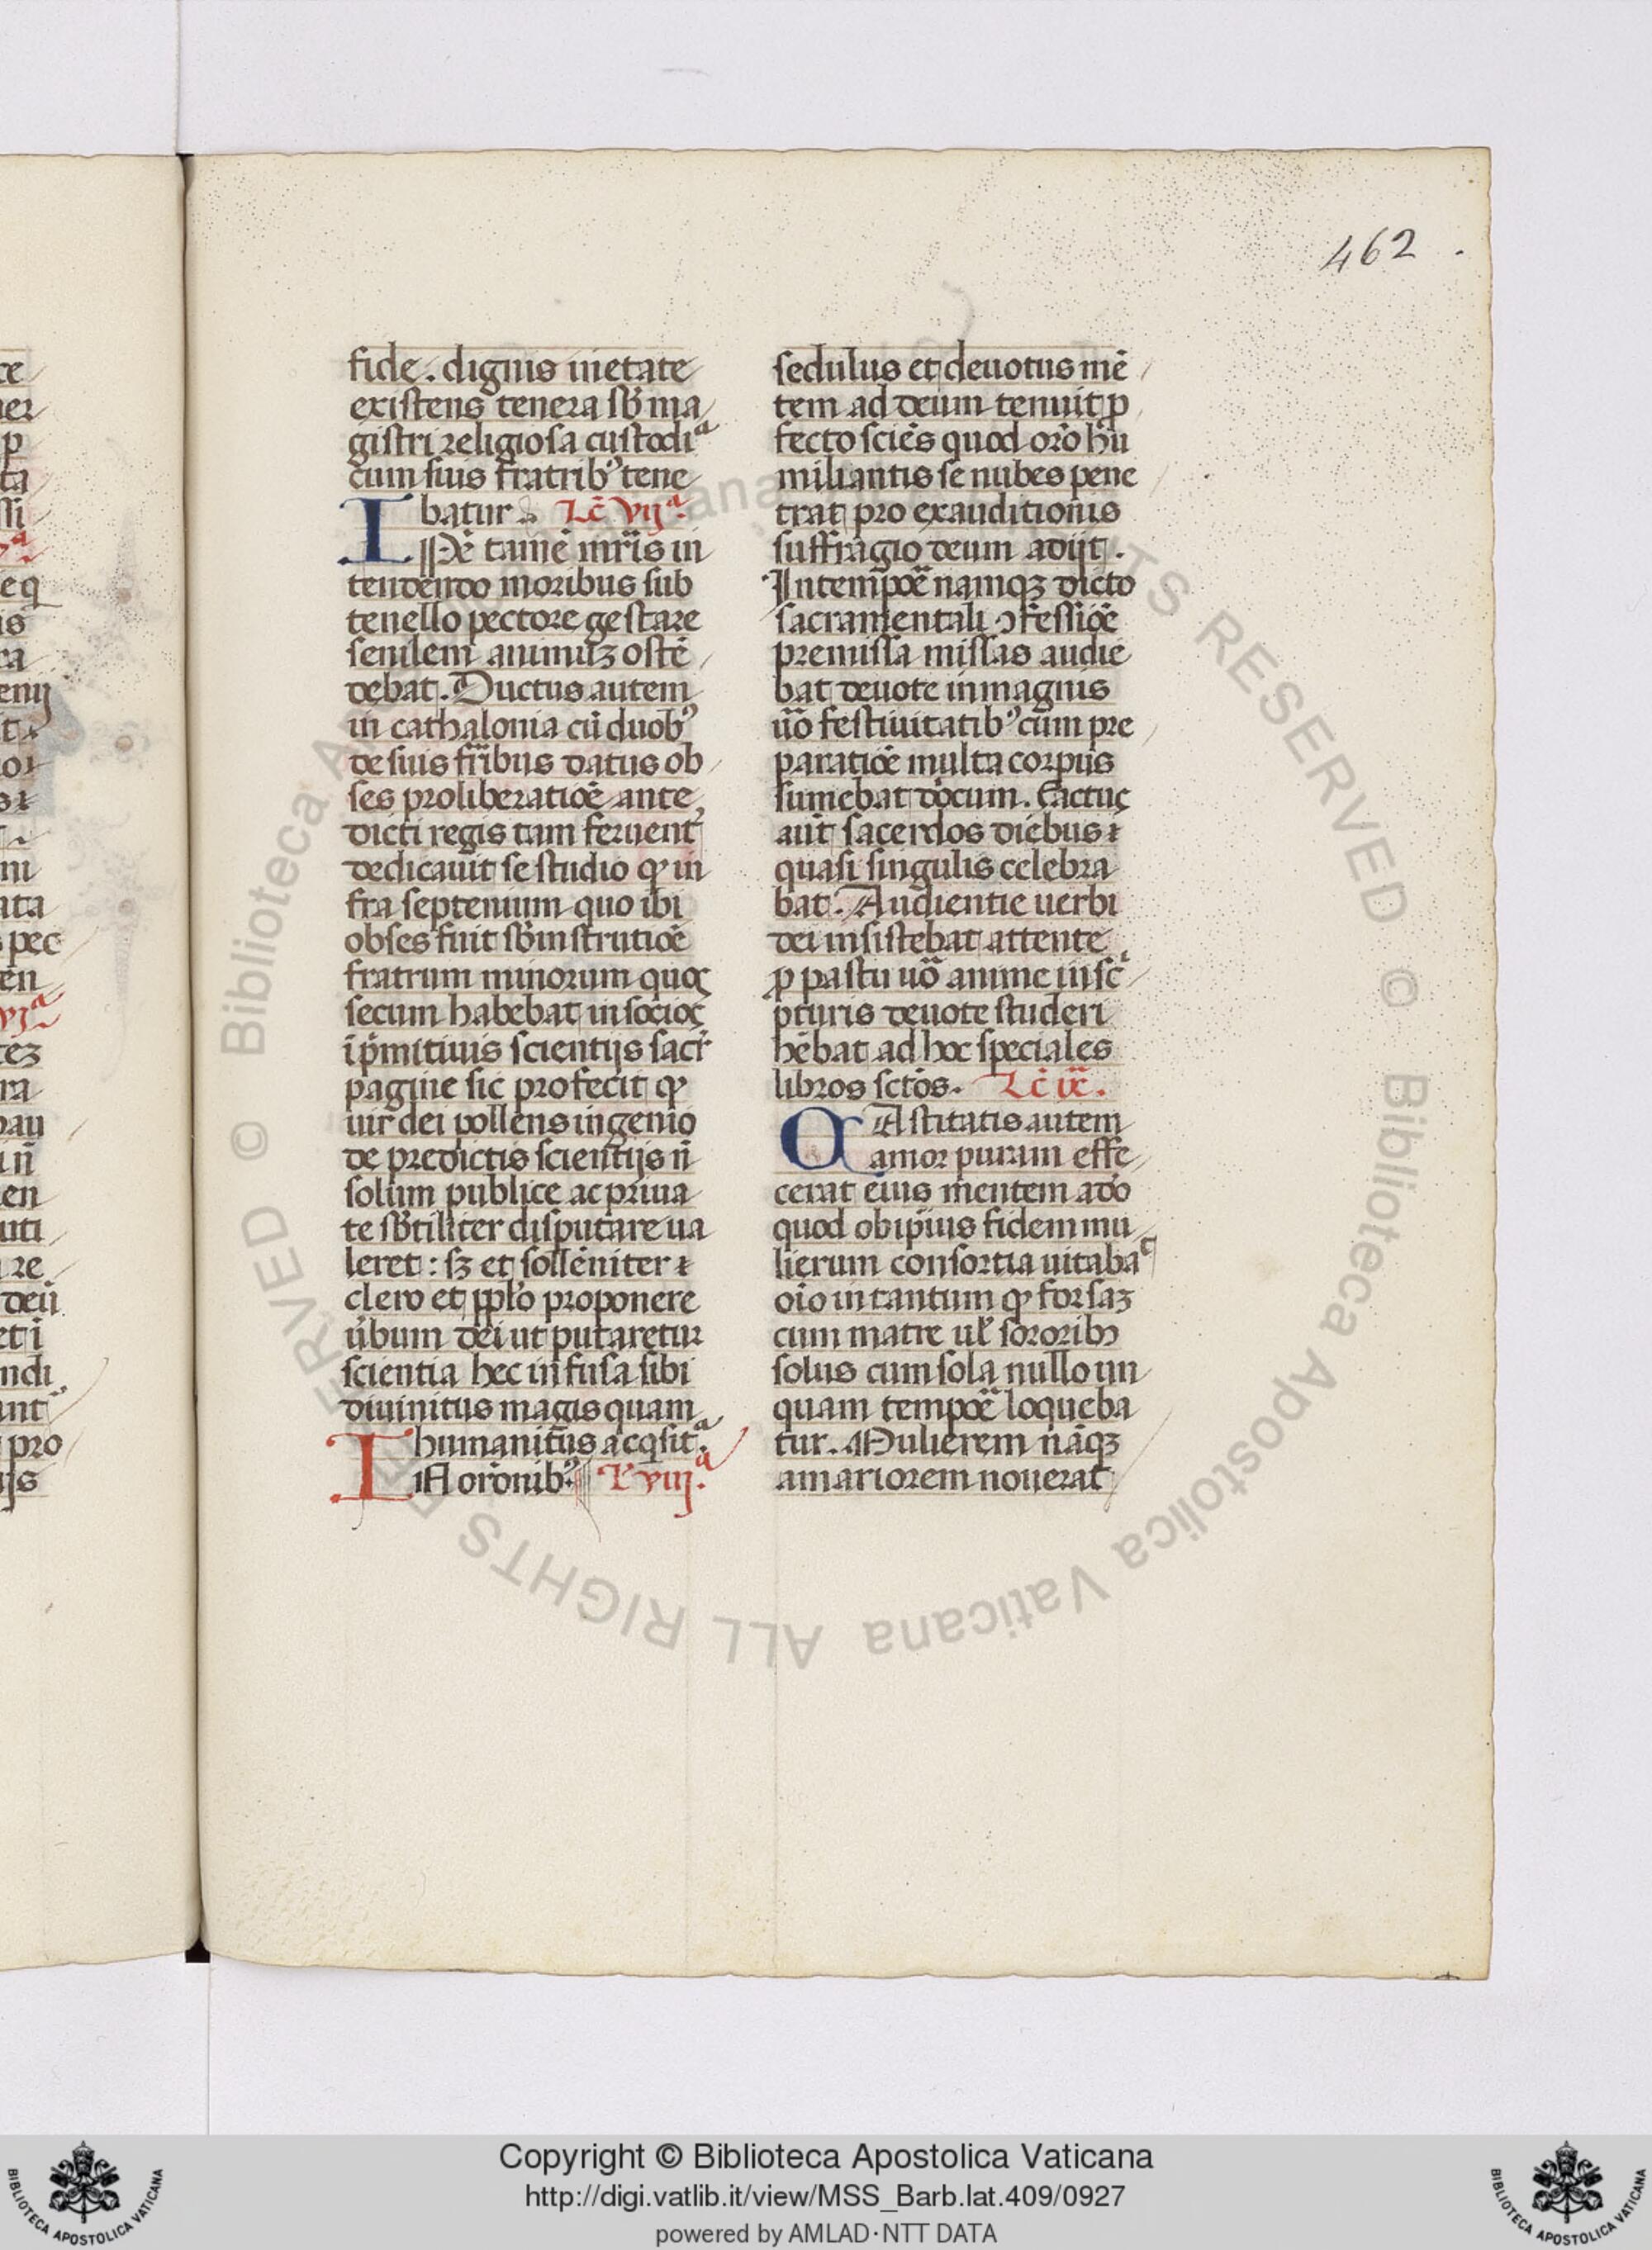 462
fide. dignus in etate
existens tenera sb̄ ma
gistri religiosa custodiᵃ
cum suis fratribꝰ tene
batur. Lc̄ vijᵃ.
Ipē tamē mr̄is in
tendendo moribus sub
tenello pectore gestare
senilem animuꝫ ostē
debat. Ductus autem
in cathalonia cū duobꝰ
de suis fr̄ibus datus ob
ses pro liberatiōe ante
dicti regis tam feruent᾽
dedicauit se studio ꝙ in
fra septenium quo ibi
obses fuit sb̄ instrutiōe
fratrum minorum quos
secum habebat in socios
ī pͥmitiuis scientijs sacr᾽
pagine sic profecit ꝙ
uir dei pollens ingenio
de predictis scientijs n̄
solum publice ac priua
te sb̄tiliter disputare ua
leret: sꝫ et sollēniter ⁊
clero et pp̄lo proponere
u᾽bum dei ut putaretur
scientia hec infusa sibi
diuinitus magis quam
humanitus acqͥsitᵃ.
IN orōnibꝰ. Lc̄ viijᵃ.
sedulus et deuotus mē
tem ad deum tenuit ꝓ
fecto sciēs quod orō hu
miliantis se nubes pene
trat pro exauditionis
suffragio deum adijt.
In tempōe namqꝫ dicto
sacramentali ↄfessiōe
premissa missas audie
bat deuote in magnis
uō festiuitatibꝰ cum pre
paratiōe multa corpus
sumebat dōcum. Factus
aūt sacerdos diebus ⁊
quasi singulis celebra
bat. Audientie uerbi
dei insistebat attente
ꝓ pastu uō anime in scͥ
pturis deuote studeri
hēbat ad hoc speciales
libros sctōs. Lc̄ ix̄.
CAstitatis autem
amor puram effe
cerat eius mentem adō
quod ob ipīus fidem mu
lierum consortia uitabaᵗ
oīo in tantum ꝙ forsaꝫ
cum matre ul̄ sororibꝫ
solus cum sola nullo un
quam tempōe loqueba
tur. Mulierem nāqꝫ
amariorem nouerat
Copyright © Biblioteca Apostolica Vaticana
http://digi.vatlib.it/view/MSS_Barb.lat.409/0927
powered by AMLAD·NTT DATA